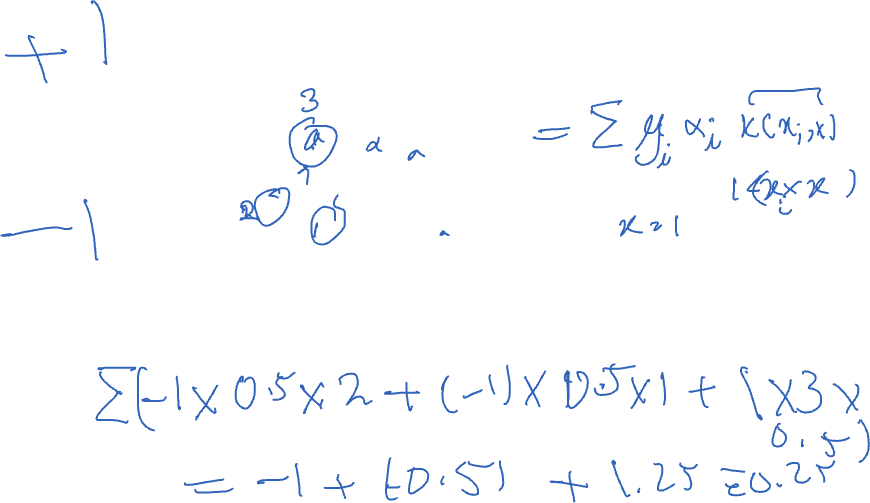 +1
3
a α a = Σ y_i α_i K(x_i, x)
1
2 1 1(x_i × x)
-1 . x=1
Σ(-1×0.5×2+(-1)×0.5×1+1×3×
0.5)
= -1+(-0.5)+1.25=0.25